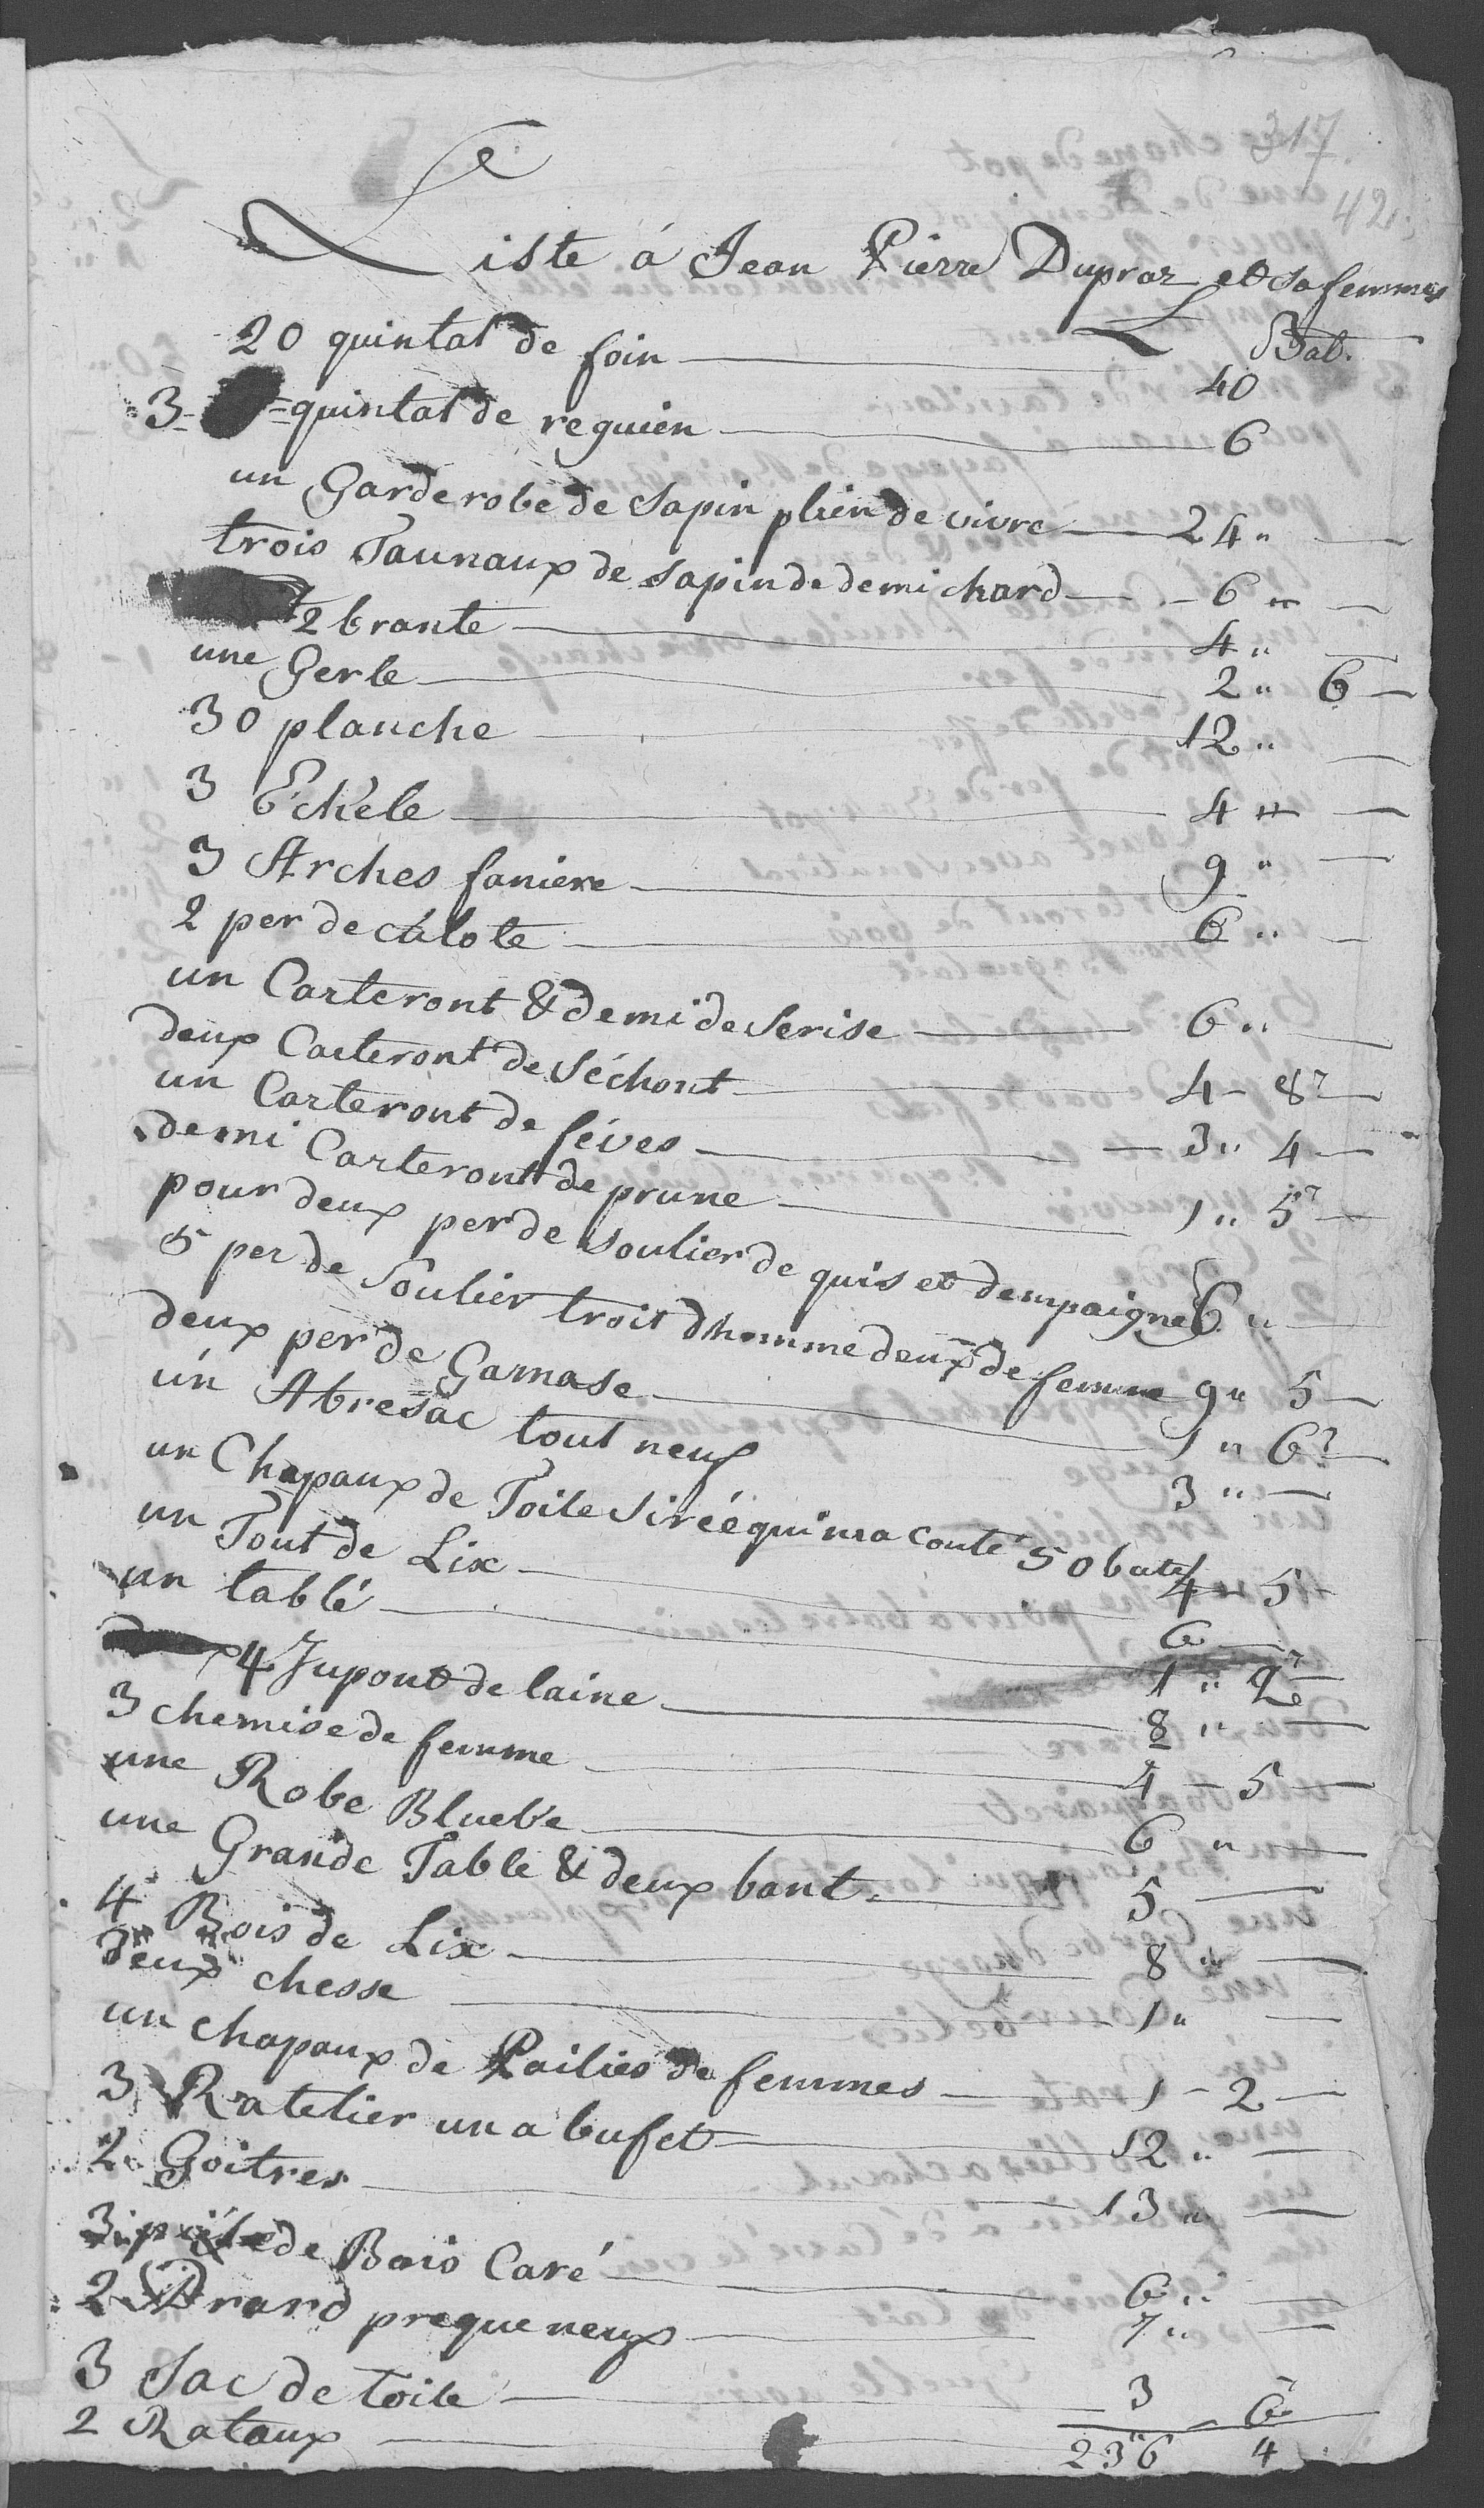 317
42
Liste á Jean Pierre Dupraz et sa femmes
L Bat.
20 quintal de foin 40
3 quintal de reguien 6
un Garderobe de sapin plien de vivre 24 "
trois Taunaux de sapin de demi chard 6 "
2 brante 4 "
une Gerle 2 " 6
30 planche 12 "
3 Echéle 4 "
3 Arches faniere 9 "
2 per de cálote 6 "
un Carteront & demi de serise 6 "
deux Carteront de séchont 4 - 8
un Carteront de féves 3 " 4
demi Carteront de prune 1 " 5
pour deux per de soulier de quis et dempaigne 6 "
5 per de soulier troit dhomme deux de femme 9 " 5
deux per de Gamase 1 " 6
un Abresac tout neuf 3 "
un Chapaux de Toile siréé qui ma couté 50 batz 4 " 5
un Tout de Lix 6
un tablé 1 " 2
4 Jupont de laine 8 "
3 chemise de femme 4 - 5
une Robe Blueve 6 "
une Grande Table & deux bant 5
4 Bois de Lix 8 "
deux chesse 1 "
un chapaux de Pailies de femmes 1 - 2
3 Ratelier un a bufet 12 "
2 Goitres 13 "
3 de Bois Caré 6 "
2 preque neuf 7 "
3 Sac de toile 3
2 Rataux 6
236 4